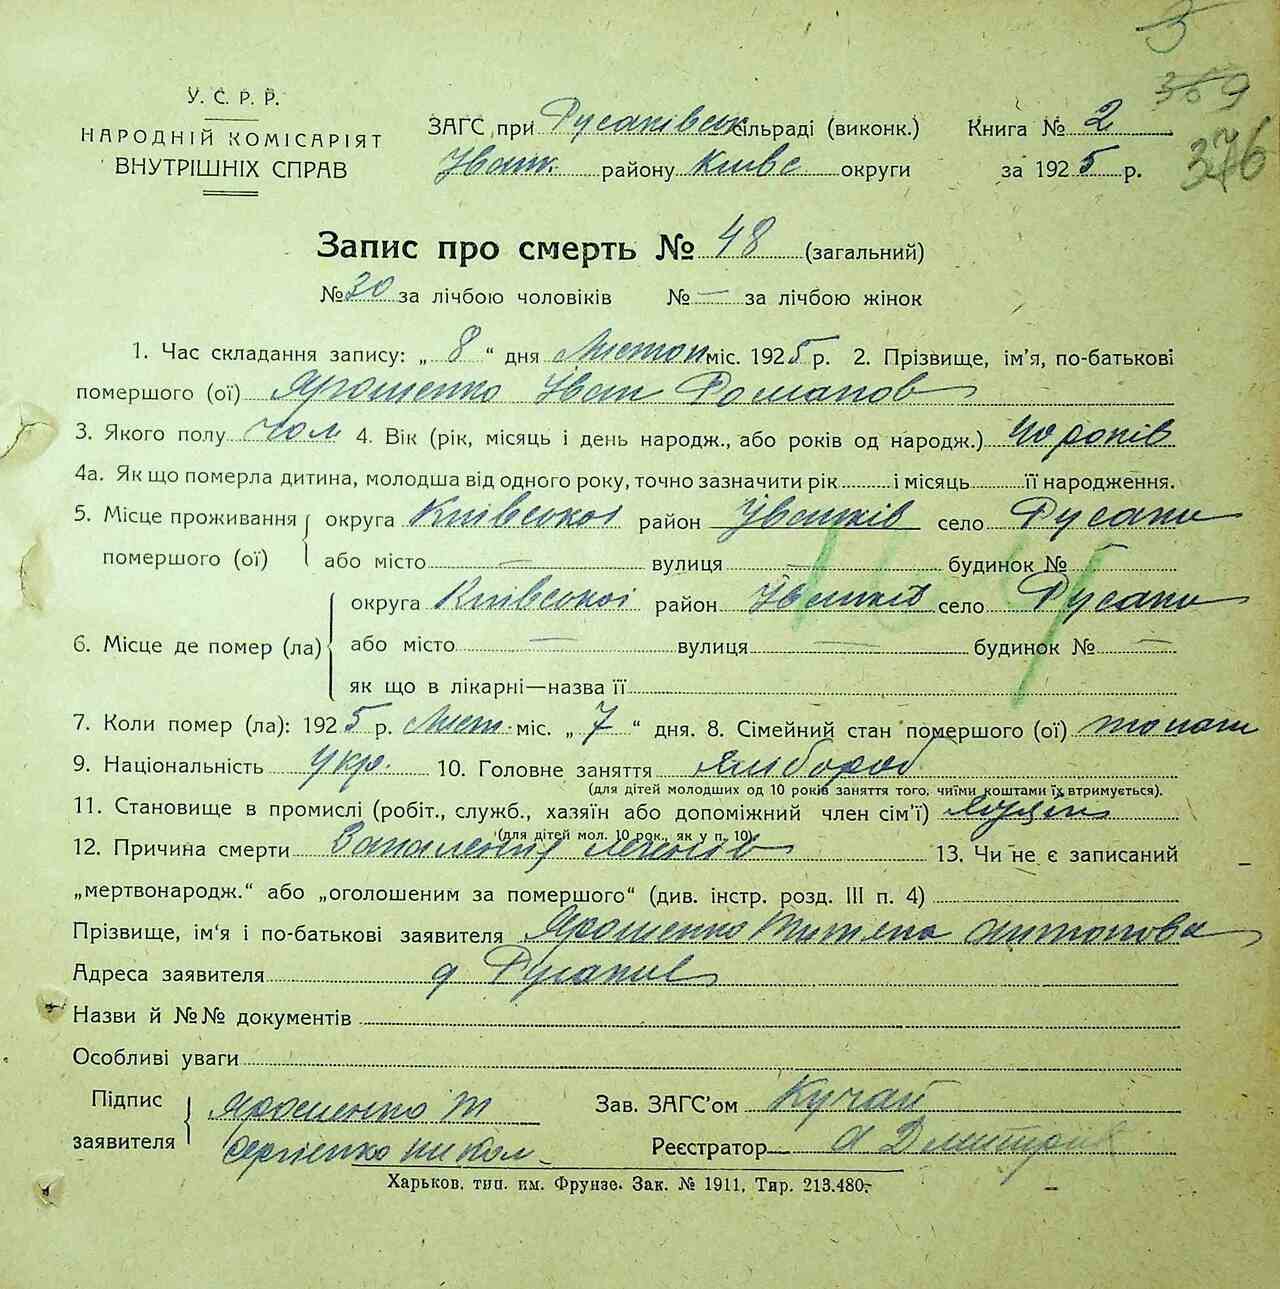 5
369
376
У. С. Р. Р.
НАРОДНІЙ КОМІСАРІЯТ
ВНУТРІШНІХ СПРАВ
ЗАГС при Русанівськ сільраді (виконк.) Книга № 2
району Київс округи за 1925 р.
Запис про смерть № 48 (загальний)
№ 30 за лічбою чоловіків № — за лічбою жінок
1. Час складання запису: „ 8 “ дня Листоп міс. 1925 р. 2. Прізвище, ім’я, по-батькові
помершого (ої) Ярошенко Іван Романов
3. Якого полу чол 4. Вік (рік, місяць і день народж., або років од народж.) 40 років
4а. Як що померла дитина, молодша від одного року, точно зазначити рік і місяць її народження.
5. Місце проживання округа Київської район село Русани
помершого (ої) або місто — вулиця — будинок № —
округа Київської район село Русани
6. Місце де помер (ла) або місто — вулиця — будинок № —
як що в лікарні—назва її
7. Коли помер (ла): 1925 р. Лист. міс. „ 7 “ дня. 8. Сімейний стан помершого (ої)
9. Національність Укр. 10. Головне заняття хлібороб
(для дітей молодших од 10 років заняття того, чиїми коштами їх втримується).
11. Становище в промислі (робіт., служб., хазяїн або допоміжний член сім’ї)
(для дітей мол. 10 рок., як у п. 10)
12. Причина смерти Запалення легенів 13. Чи не є записаний
„мертвонародж.“ або „оголошеним за помершого“ (див. інстр. розд. III п. 4)
Прізвище, ім‘я і по-батькові заявителя Ярошенко Титяна Антонова
Адреса заявителя Русанів
Назви й №№ документів
Особливі уваги
Підпис Ярошенко Т Зав. ЗАГС’ом Кучай
заявителя Сергієнко Реєстратор
Харьков, тип. им. Фрунзе. Зак. № 1911, Тир. 213.480.